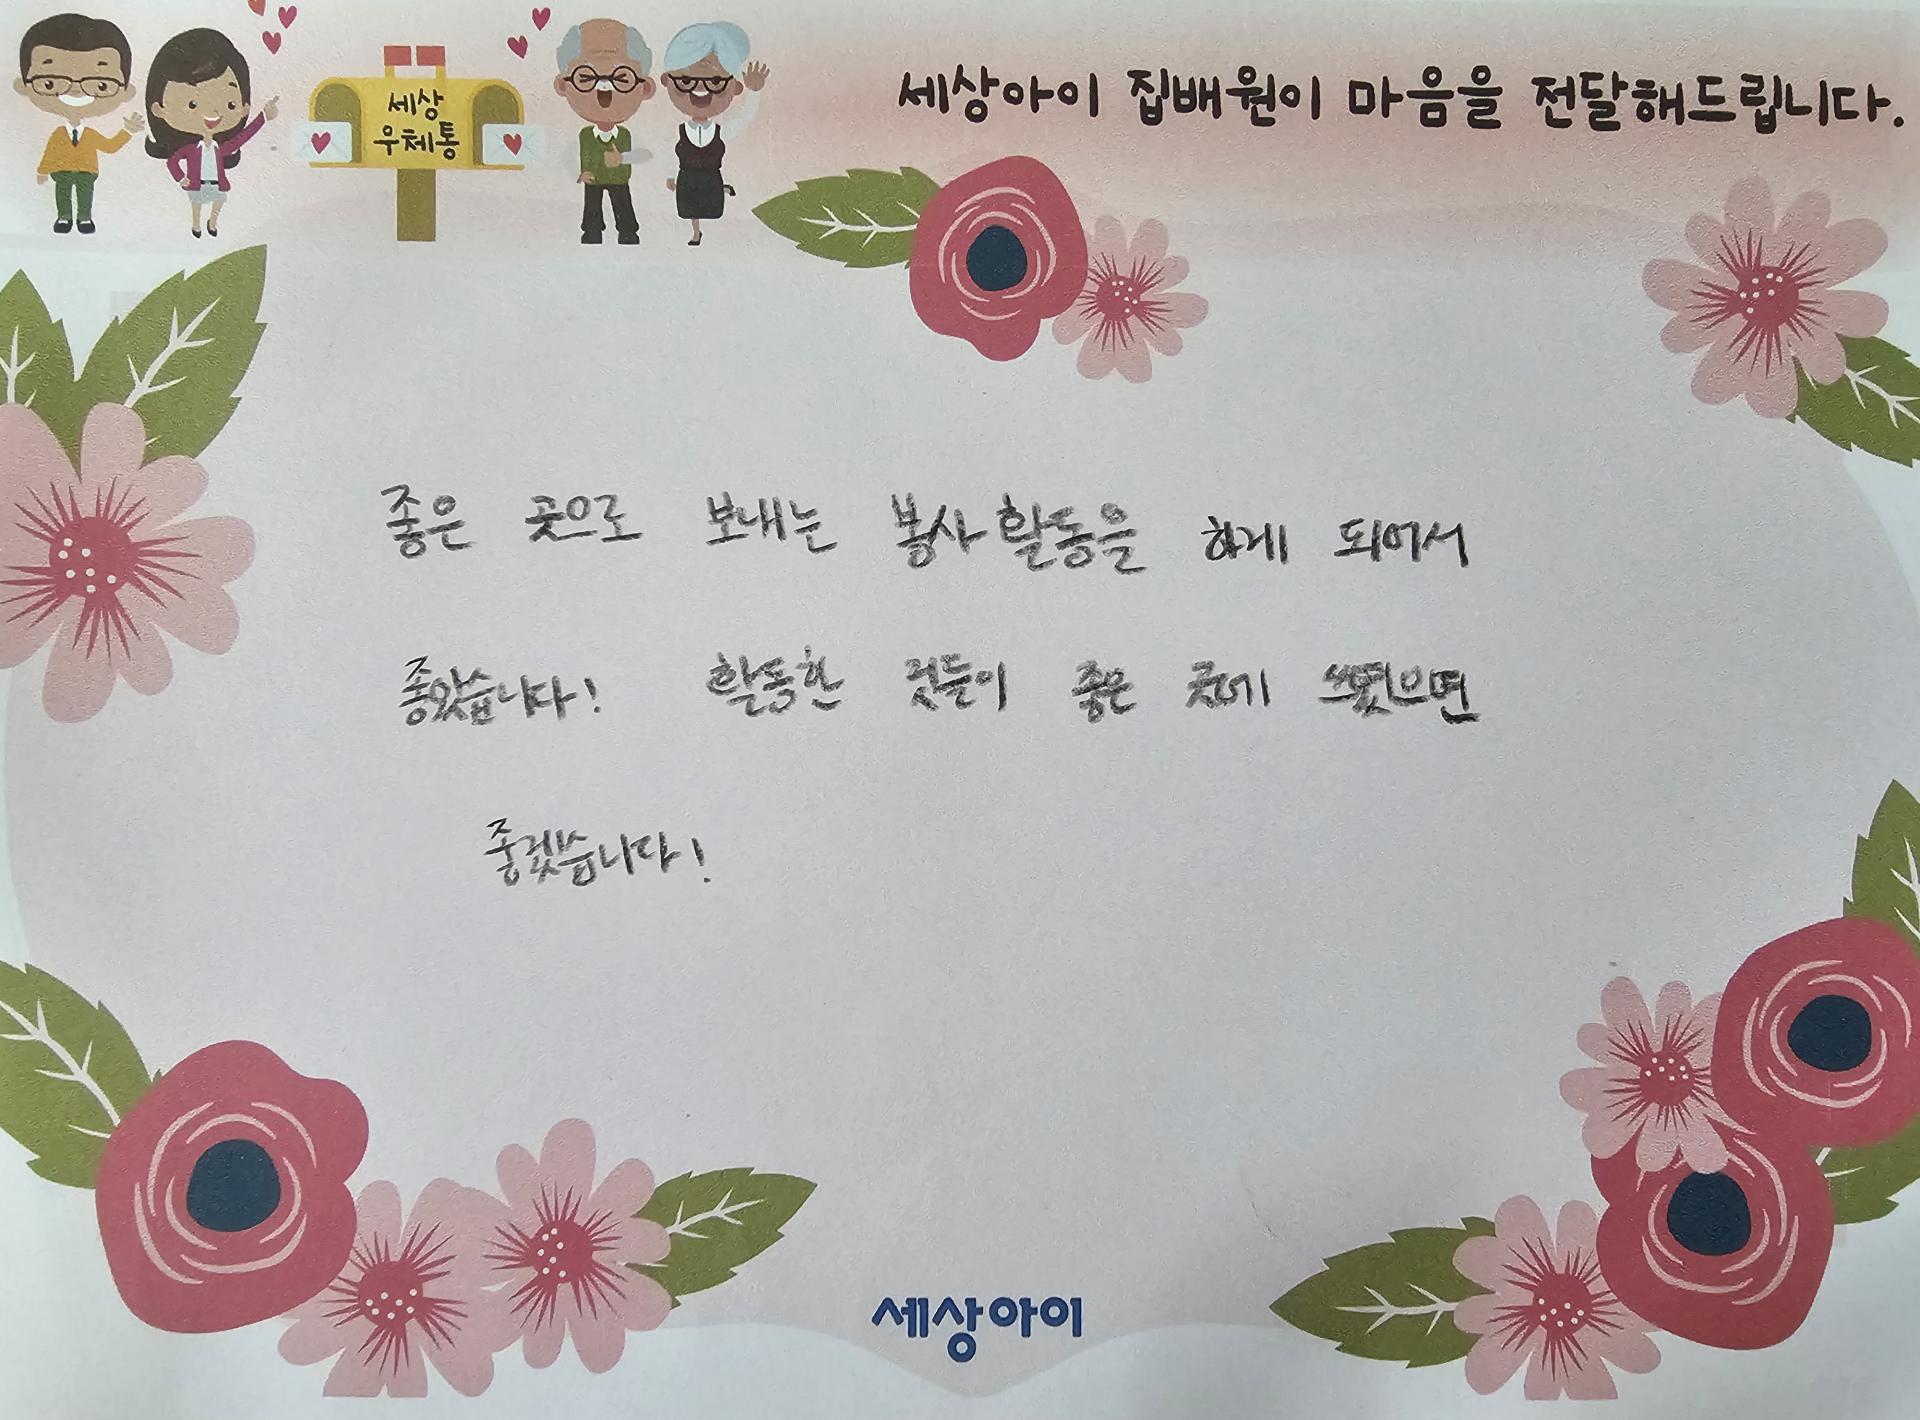 세상아이 집배원이 마음을 전달해드립니다.
세상
우체통
좋은 곳으로 보내는 봉사활동을 하게 되어서
좋았습니다! 활동한 것들이 좋은 곳에 쓰였으면
좋겠습니다!
세상아이